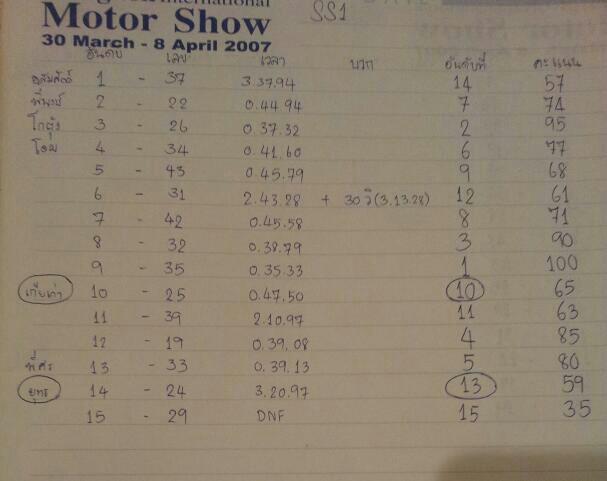 International
Motor Show
30 March - 8 April 2007
SS1
อันดับ เลข เวลา บวก อันดับที่ คะแนน
1 - 37 3.37.94 14 57
2 - 22 0.44.94 7 74
3 - 26 0.37.32 2 95
โอม 4 - 34 0.41.60 6 77
5 - 43 0.45.79 9 68
6 - 31 2.43.28 + 30 วิ (3.13.28) 12 61
7 - 42 0.45.58 8 71
8 - 32 0.38.79 3 90
9 - 35 0.35.33 1 100
10 - 25 0.47.50 10 65
11 - 39 2.10.97 11 63
12 - 19 0.39.08 4 85
13 - 33 0.39.13 5 80
ยุทธ 14 - 24 3.20.97 13 59
15 - 29 DNF 15 35